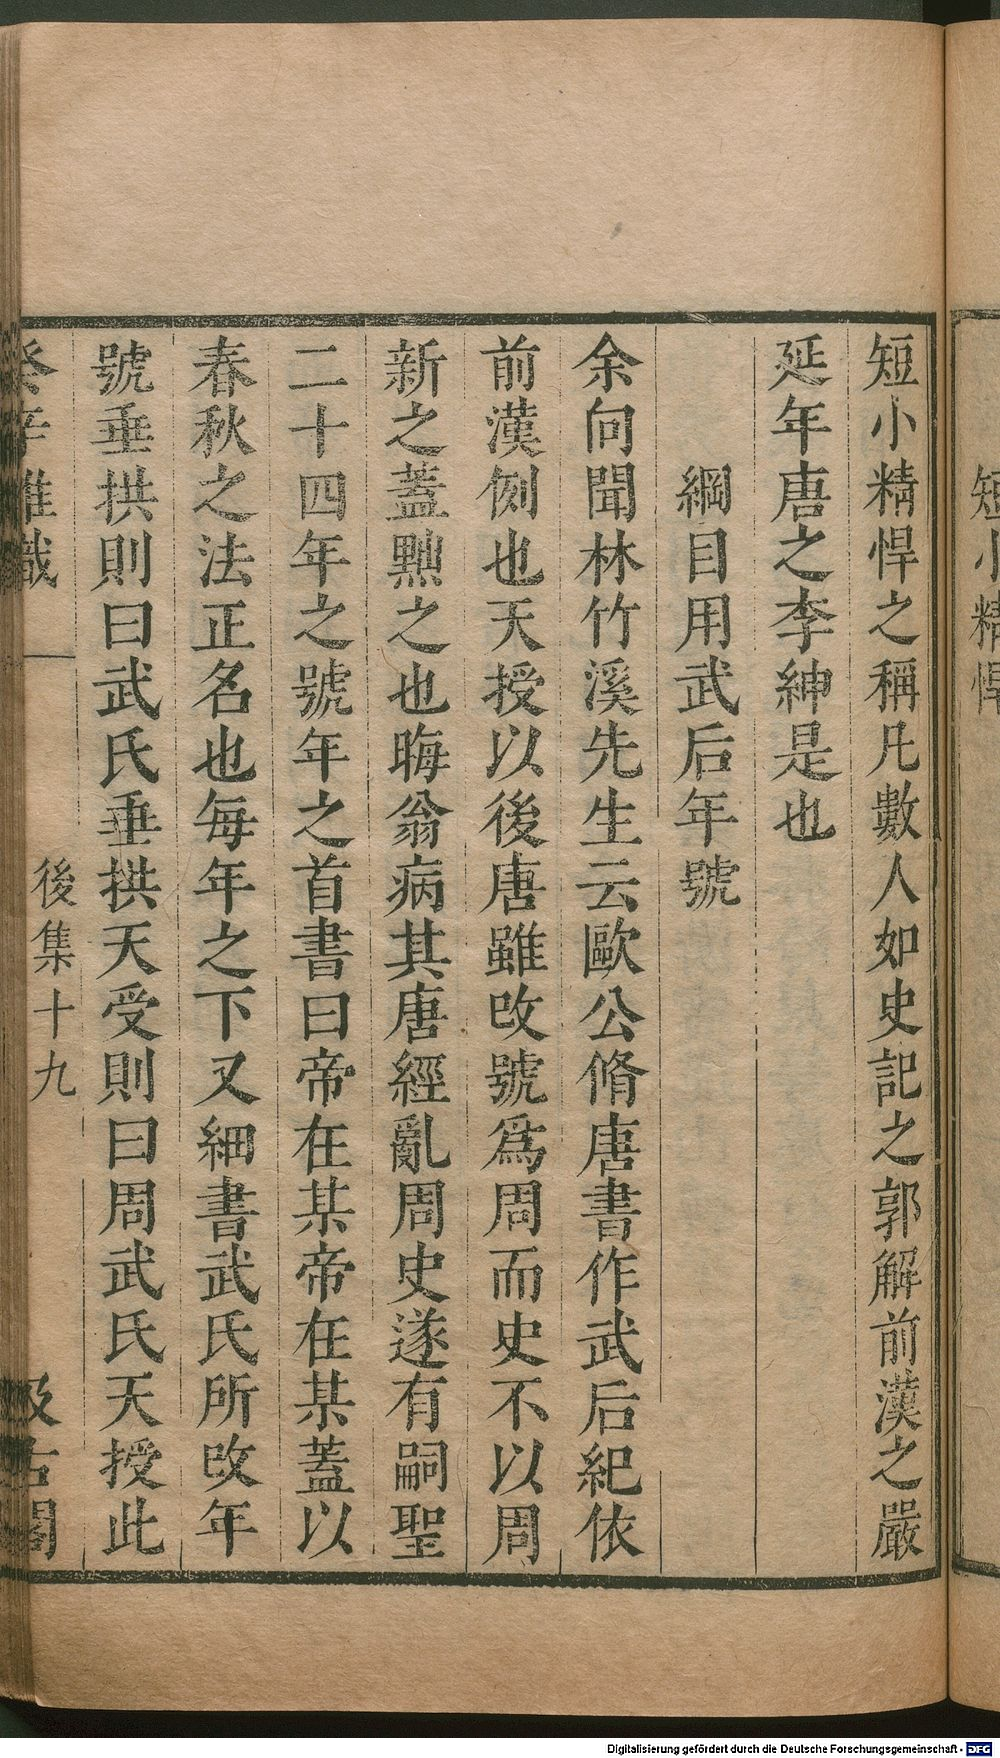 短小精悍
短小精悍之稱凡數人如史記之郭解前漢之嚴
延年唐之李紳是也
綱目用武后年號
余向聞林竹溪先生云歐公脩唐書作武后紀依
前漢例也天授以後唐雖改號爲周而史不以周
新之蓋黜之也晦翁病其唐經亂周史遂有嗣聖
二十四年之號年之首書曰帝在某帝在某蓋以
春秋之法正名也每年之下又細書武氏所改年
號垂拱則曰武氏垂拱天受則曰周武氏天授此
癸辛雜識 後集十九 汲古閣
Digitalisierung gefördert durch die Deutsche Forschungsgemeinschaft - DFG